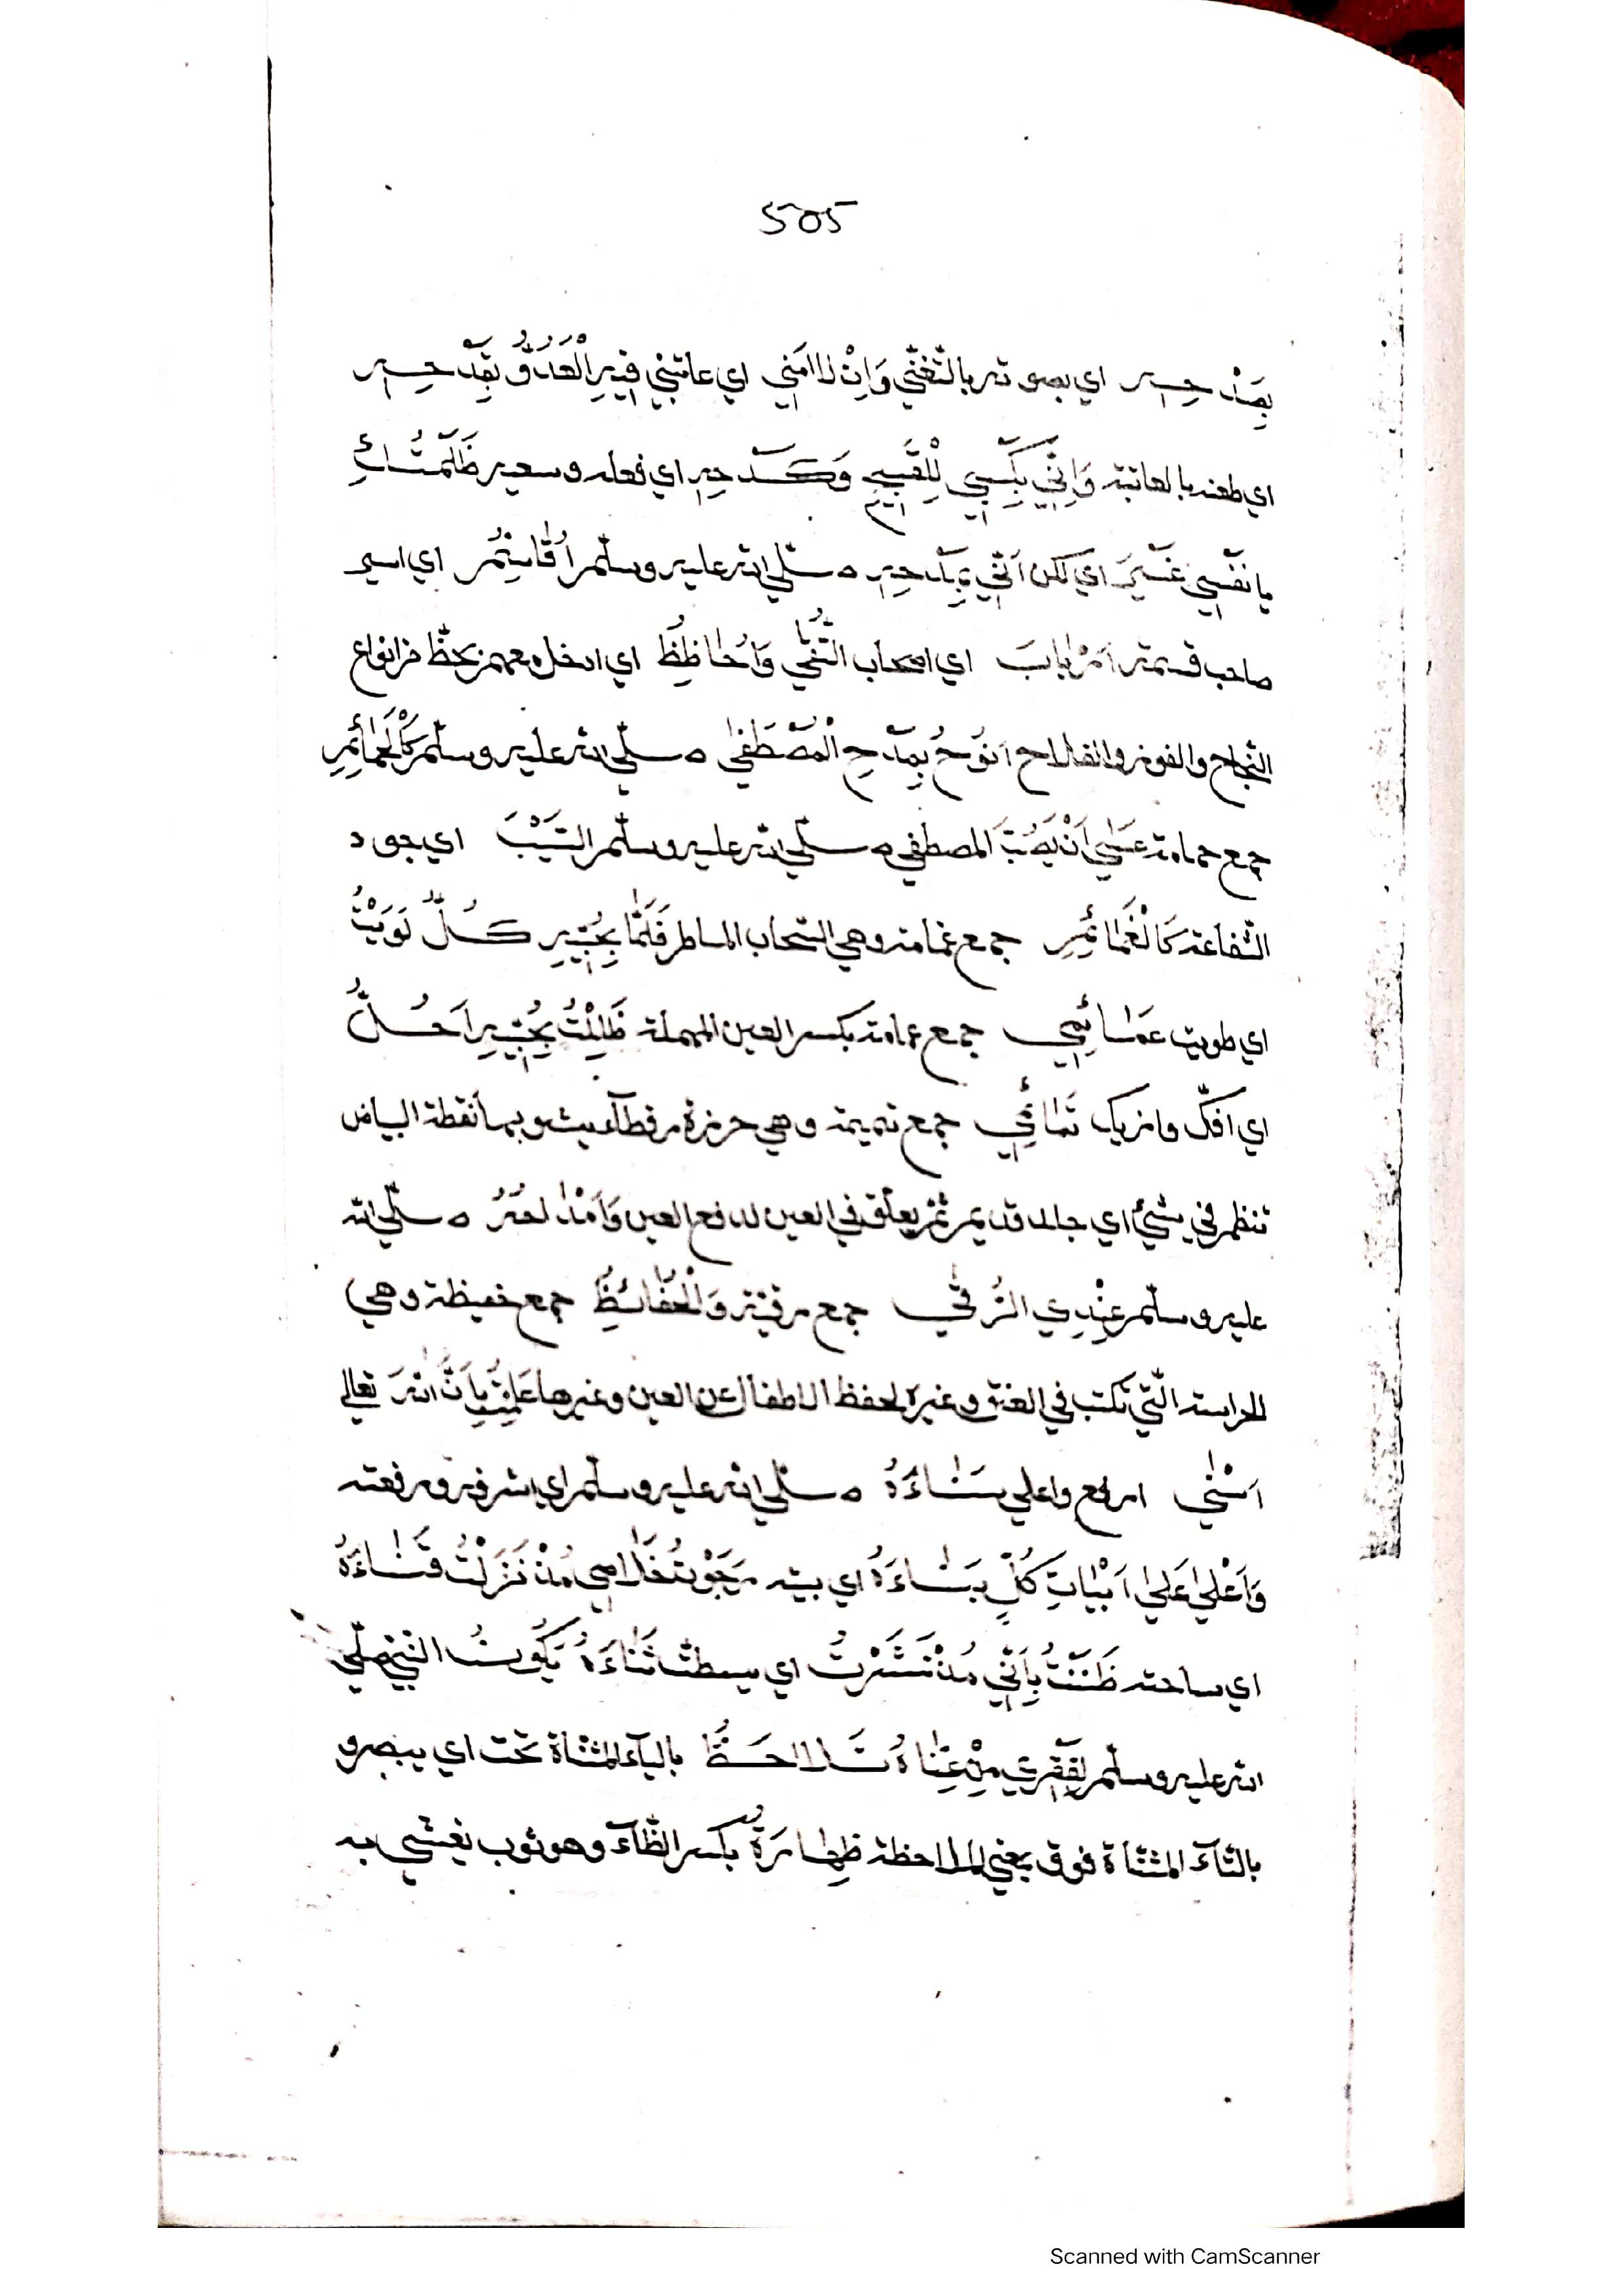 505
بِصَدْحِهِ اي بصوته بالتّغنّي وَاِنْ لَامَنِي اي عاتبني فِيهِ الْعَدُوُّ بِقَدْحِهِ
اي طعنه بالمعاتبة وَاِنِّي بِكَسْبِي لِلْقَبِيحِ وَكَدْحِهِ اي فعله وسعيه ظَلَمْتُ
يا نفسي اي لكن اَنِّي بِمَدْحِهِ ه صلّى الله عليه وسلّم اُقَاسِمُ اي اسم
صاحب قسمته اَرْبَابَ اي اصحاب التُّقَى وَاُحَاظِظُ اي ادخل معهم بحظّ من انواع
النّجاح والفوز والفلاح اَنُوحُ بِمَدْحِ الْمُصْطَفَى ه صلّى الله عليه وسلّم كَالْحَمَائِمِ
جمع حمامة عَسَى اَنْ يَصُبَّ المصطفى ه صلّى الله عليه وسلّم السَّيْبَ اي جود
الشّفاعة كَالْغَمَائِمِ جمع غمامة وهي السّحاب الماطر فَلَمَّا بِحُبِّيهِ كُلُّ لَوَيْتُ
اي طويت عَمَائِمِي جمع عمامة بكسر العين المهملة ظَلِلْتُ بِحُبِّيهِ اَحُلُّ
اي افكّ وازيل تَمَائِمِي جمع تميمة وهي خرزة رقطآء يشوبها نقطة البياض
تنظم في شيئ اي جلد قديم ثمّ يعلّق في العين لدفع العين وَاَمْدَاحُهُ ه صلّى الله
عليه وسلّم عِنْدِي الرُّقَى جمع رقية وَالْحَفَائِظُ جمع حفيظة وهي
الحراسة الّتي تكتب في العنق وغيره لحفظ الاطفال عن العين وغيرها عَلِمْتُ بِاَنَّ اللهَ تعالى
اَسْنَى ارفع واعلى سَنَاءَهُ ه صلّى الله عليه وسلّم اي شرفه ورفعته
وَاَعْلَى عَلَى اَبْيَاتِ كُلٍّ بِنَاءَهُ اي بيته رَجَوْتُ خَلَاصِي مُذْ نَزَلْتُ فَنَاءَهُ
اي ساحته ظَنَنْتُ بِاَنِّي مُذْ نَشَرْتُ اي بسطت ثَنَاءَهُ يَكُونُ النّبيّ صلّى
الله عليه وسلّم لِفَقْرِي مِنْ غِنَاهُ يُلَاحَظُ بالياء المثنّاة تحت اي يبصر و
بالتّآء المثنّاة فوق بمعني الملاحظة ظِهَارَةٌ بكسر الظّآء وهو ثوب يغشى به
Scanned with CamScanner